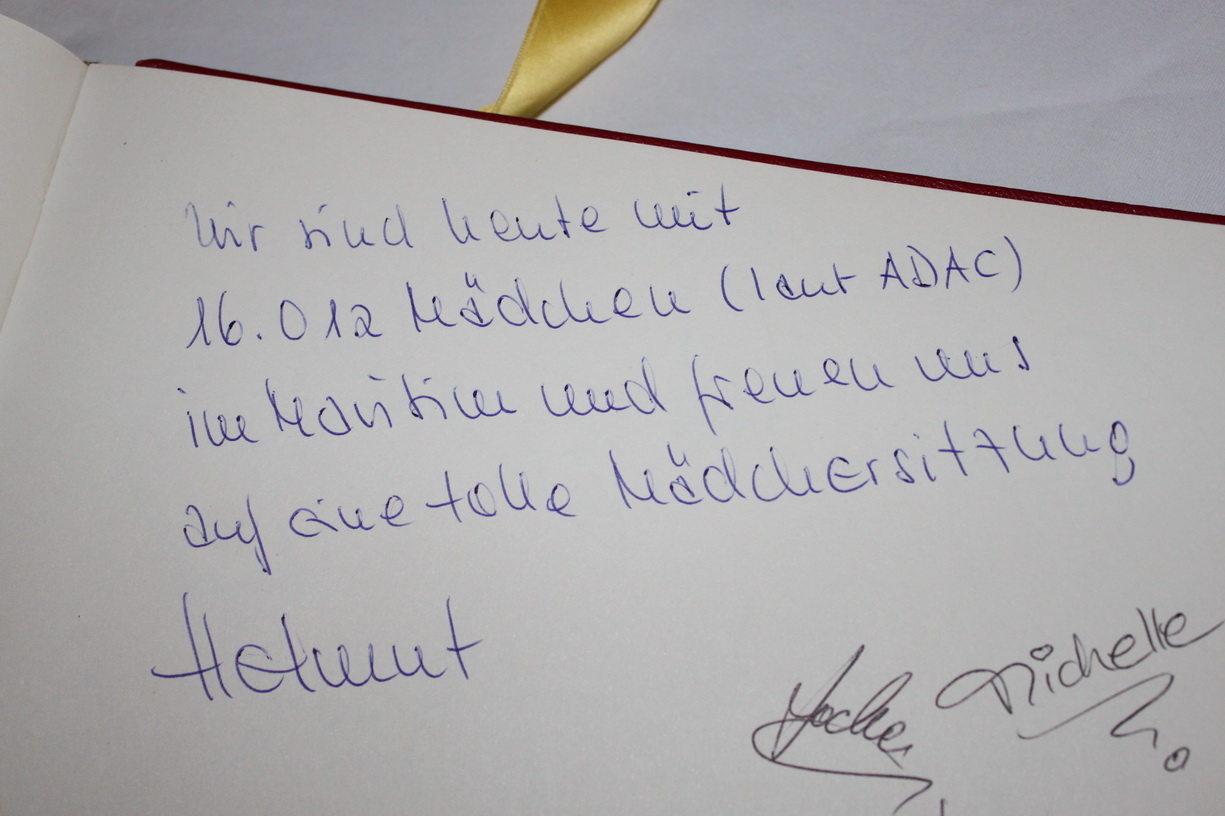 Wir sind heute mit
16.012 Mädchen (laut ADAC)
im Maritim und freuen uns
auf eine tolle Mädchersitzung
Helmut
Michelle